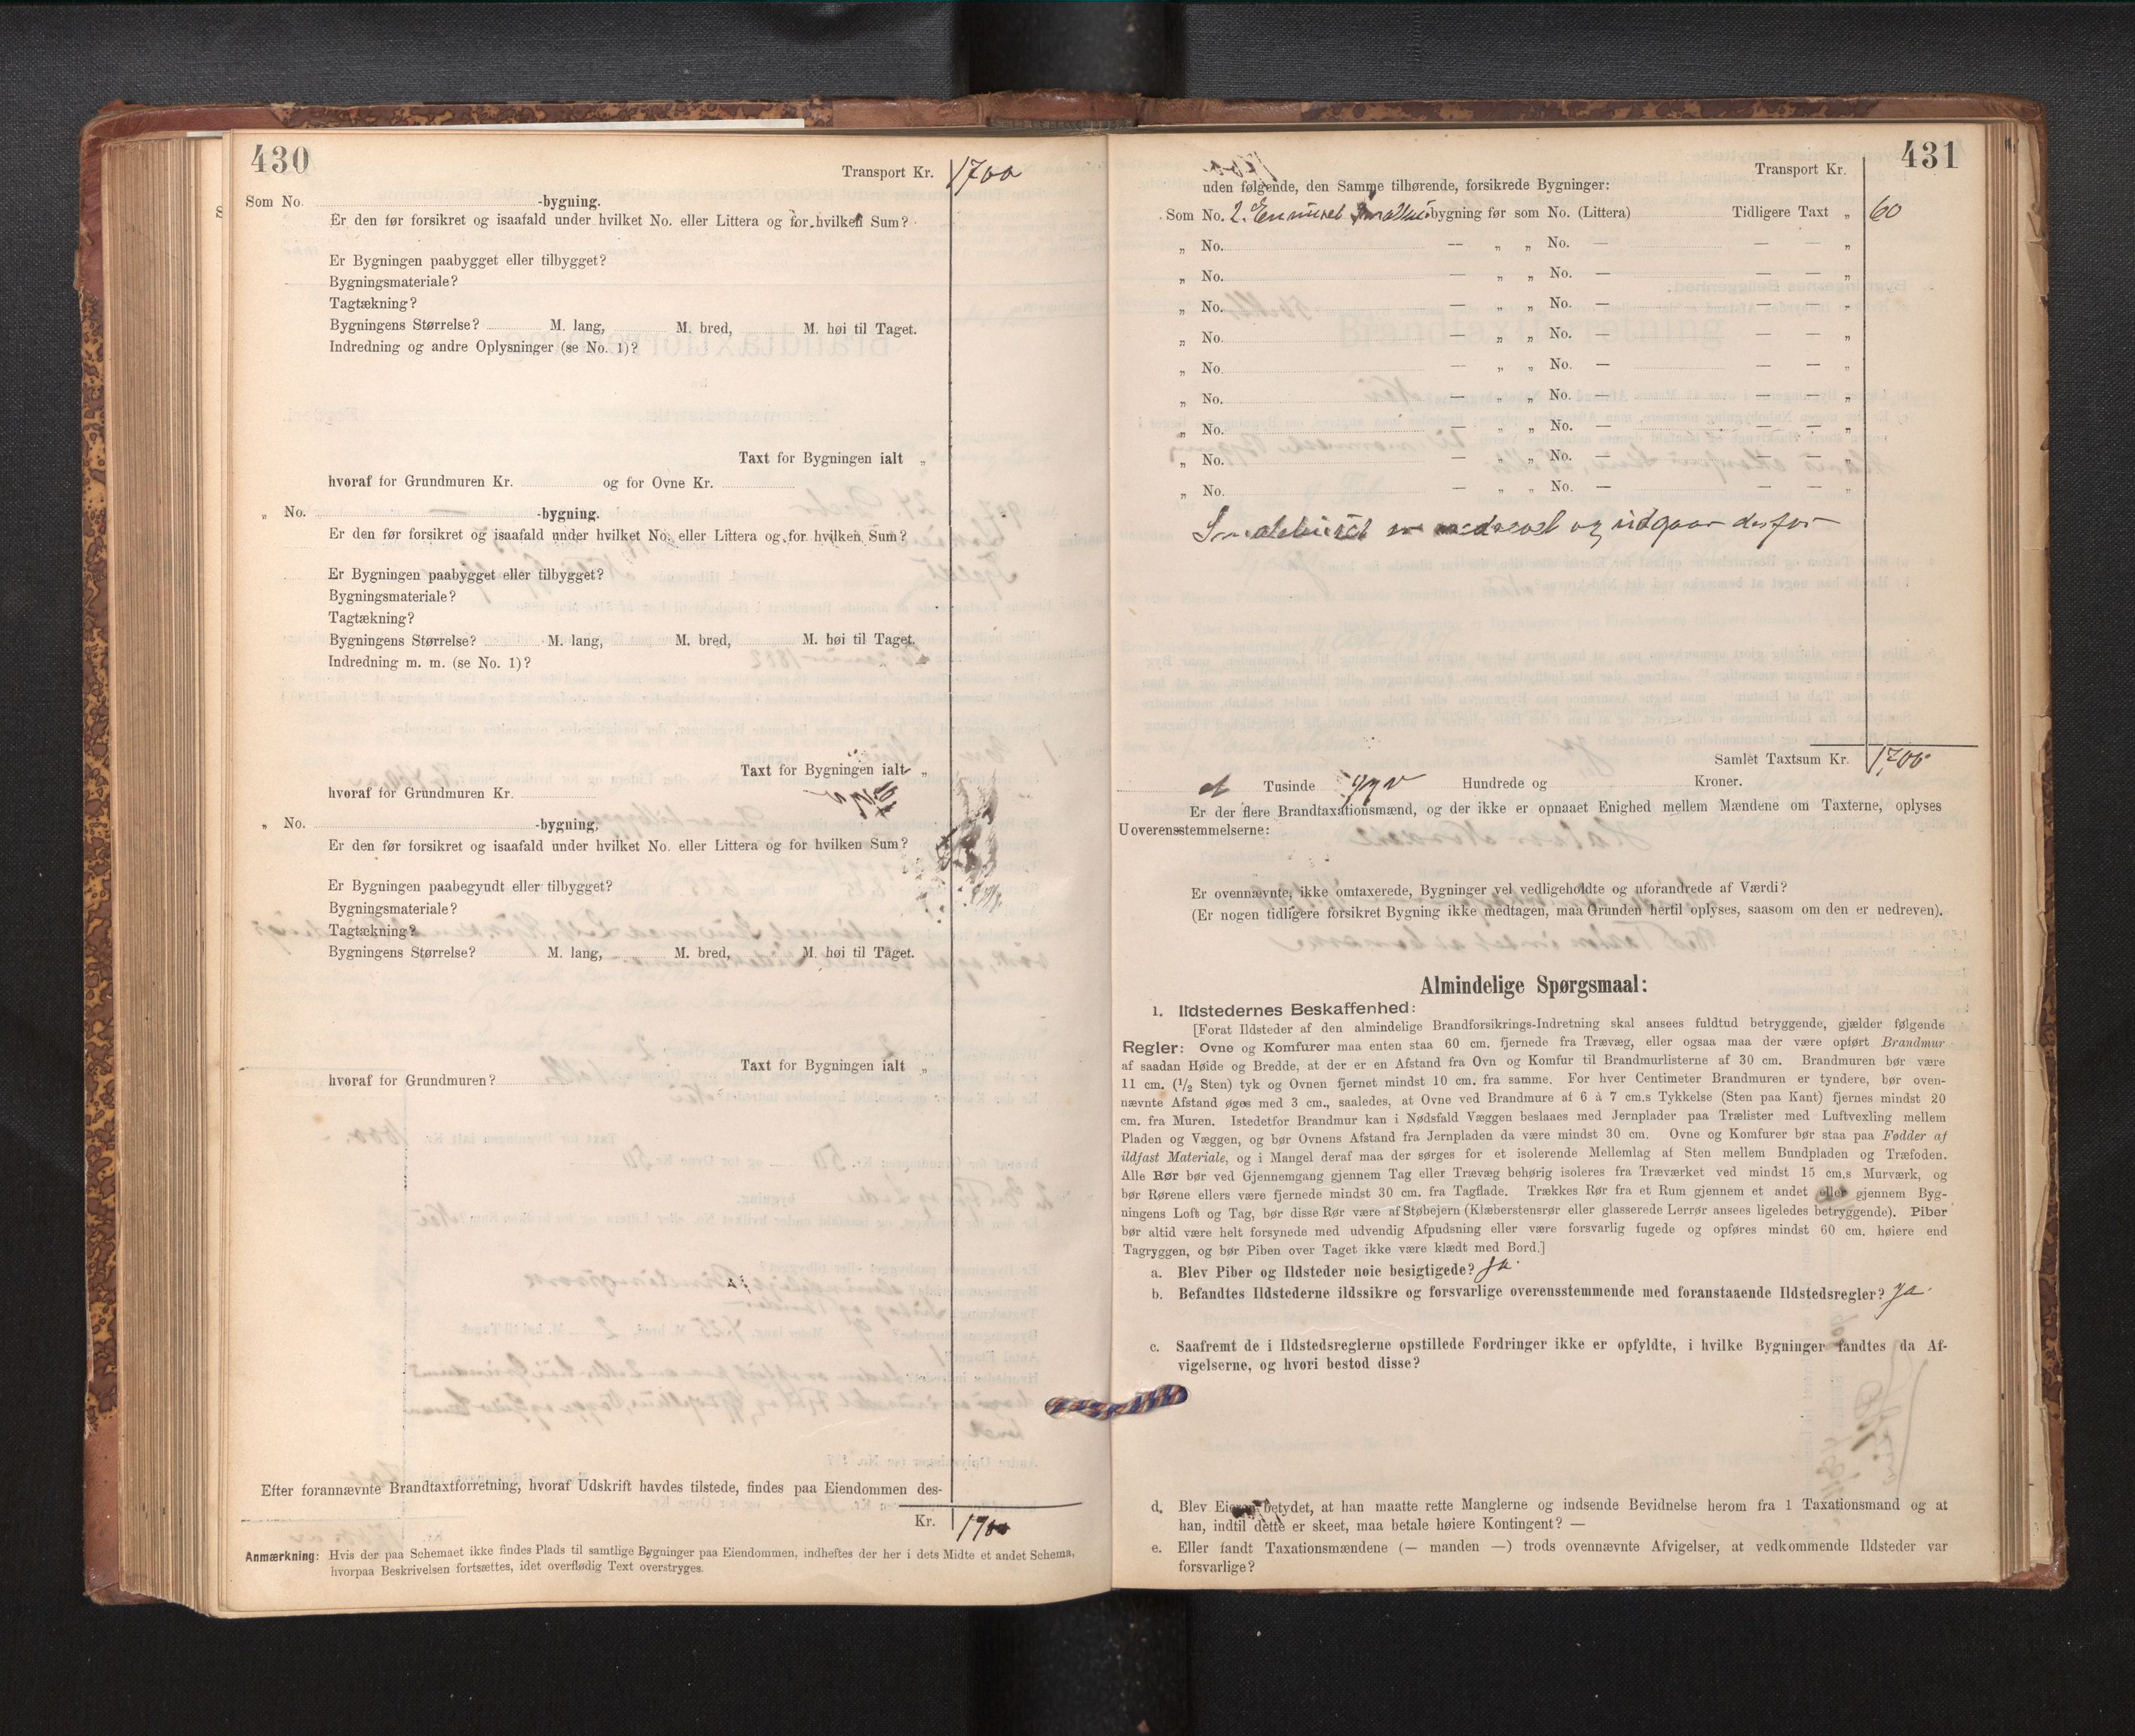 430
Transport Kr. 1700
Som No. -bygning.
Er den før forsikret og isaafald under hvilket No. eller Littera og for hvilken Sum?
Er Bygningen paabygget eller tilbygget?
Bygningsmateriale?
Tagtækning?
Bygningens Størrelse? M. lang, M. bred, M. høi til Taget.
Indredning og andre Oplysninger (se No. 1)?
Taxt for Bygningen ialt „
hvoraf for Grundmuren Kr. og for Ovne Kr.
„ No. -bygning.
Er den før forsikret og isaafald under hvilket No. eller Littera og for hvilken Sum?
Er Bygningen paabygget eller tilbygget?
Bygningsmateriale?
Tagtækning?
Bygningens Størrelse? M. lang, M. bred, M. høi til Taget.
Indredning m. m. (se No. 1)?
Taxt for Bygningen ialt „
hvoraf for Grundmuren Kr.
„ No. -bygning.
Er den før forsikret og isaafald under hvilket No. eller Littera og for hvilken Sum?
Er Bygningen paabegyudt eller tilbygget?
Bygningsmateriale?
Tagtækning?
Bygningens Størrelse? M. lang, M. bred, M. høi til Taget.
Taxt for Bygningen ialt „
hvoraf for Grundmuren?
Efter forannævnte Brandtaxtforretning, hvoraf Udskrift havdes tilstede, findes paa Eiendommen des-
Kr. 1700
Anmærkning: Hvis der paa Schemaet ikke findes Plads til samtlige Bygninger paa Eiendommen, indheftes der her i dets Midte et andet Schema,
hvorpaa Beskrivelsen fortsættes, idet overflødig Text overstryges.
431
Transport Kr.
uden følgende, den Samme tilhørende, forsikrede Bygninger:
Som No. 2. En muret bygning før som No. (Littera) Tidligere Taxt „ 60
„ No. — „ „ No. — — — „
„ No. — „ „ No. — — — „
„ No. — „ „ No. — — — „
„ No. — „ „ No. — — — „
„ No. — „ „ No. — — — „
„ No. — „ „ No. — — — „
„ No. — „ „ No. — — — „
„ No. — „ „ No. — — — „
„ No. — „ „ No. — — — „
er og udgaar derfor
Samlet Taxtsum Kr. 1700
et Tusinde syv Hundrede og Kroner.
Er der flere Brandtaxationsmænd, og der ikke er opnaaet Enighed mellem Mændene om Taxterne, oplyses
Uoverensstemmelserne:
Er ovennævnte, ikke omtaxerede, Bygninger vel vedligeholdte og uforandrede af Værdi?
(Er nogen tidligere forsikret Bygning ikke medtagen, maa Grunden hertil oplyses, saasom om den er nedreven).
Almindelige Spørgsmaal:
1. Ildstedernes Beskaffenhed:
[Forat Ildsteder af den almindelige Brandforsikrings-Indretning skal ansees fuldtud betryggende, gjælder følgende
Regler: Ovne og Komfurer maa enten staa 60 cm. fjernede fra Trævæg, eller ogsaa maa der være opført Brandmur
af saadan Høide og Bredde, at der er en Afstand fra Ovn og Komfur til Brandmurlisterne af 30 cm. Brandmuren bør være
11 cm. (1/2 Sten) tyk og Ovnen fjernet mindst 10 cm. fra samme. For hver Centimeter Brandmuren er tyndere, bør oven-
nævnte Afstand øges med 3 cm., saaledes, at Ovne ved Brandmure af 6 à 7 cm.s Tykkelse (Sten paa Kant) fjernes mindst 20
cm. fra Muren. Istedetfor Brandmur kan i Nødsfald Væggen beslaaes med Jernplader paa Trælister med Luftvexling mellem
Pladen og Væggen, og bør Ovnens Afstand fra Jernpladen da være mindst 30 cm. Ovne og Komfurer bør staa paa Fødder af
ildfast Materiale, og i Mangel deraf maa der sørges for et isolerende Mellemlag af Sten mellem Bundpladen og Træfoden.
Alle Rør bør ved Gjennemgang gjennem Tag eller Trævæg behørig isoleres fra Træværket ved mindst 15 cm.s Murværk, og
bør Rørene ellers være fjernede mindst 30 cm. fra Tagflade. Trækkes Rør fra et Rum gjennem et andet eller gjennem Byg-
ningens Loft og Tag, bør disse Rør være af Støbejern (Klæberstensrør eller glasserede Lerrør ansees ligeledes betryggende). Piber
bør altid være helt forsynede med udvendig Afpudsning eller være forsvarlig fugede og opføres mindst 60 cm. høiere end
Tagryggen, og bør Piben over Taget ikke være klædt med Bord.]
a. Blev Piber og Ildsteder nøie besigtigede? Ja.
b. Befandtes Ildstederne ildssikre og forsvarlige overensstemmende med foranstaaende Ildstedsregler? Ja.
c. Saafremt de i Ildstedsreglerne opstillede Fordringer ikke er opfyldte, i hvilke Bygninger fandtes da Af-
vigelserne, og hvori bestod disse?
d. Blev Eieren betydet, at han maatte rette Manglerne og indsende Bevidnelse herom fra 1 Taxationsmand og at
han, indtil dette er skeet, maa betale høiere Kontingent? —
e. Eller fandt Taxationsmændene (— manden —) trods ovennævnte Afvigelser, at vedkommende Ildsteder var
forsvarlige?